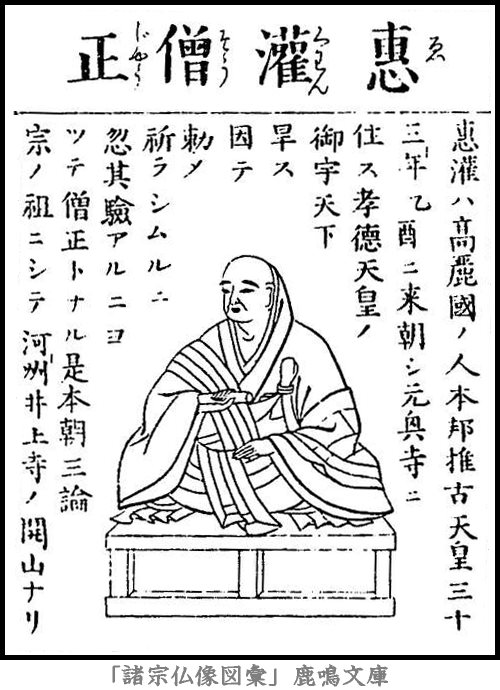 惠灌僧正
ゑくわんそうじやう
惠灌ハ高麗國ノ人本邦推古天皇三十
三年乙酉ニ来朝シ元興寺ニ
住ス孝德天皇ノ
御宇天下
旱ス
因テ
勅メ
祈ラシムルニ
忽其驗アルニヨ
ツテ僧正トナル是本朝三論
宗ノ祖ニシテ河州井上寺ノ開山ナリ
「諸宗仏像図彙」鹿鳴文庫